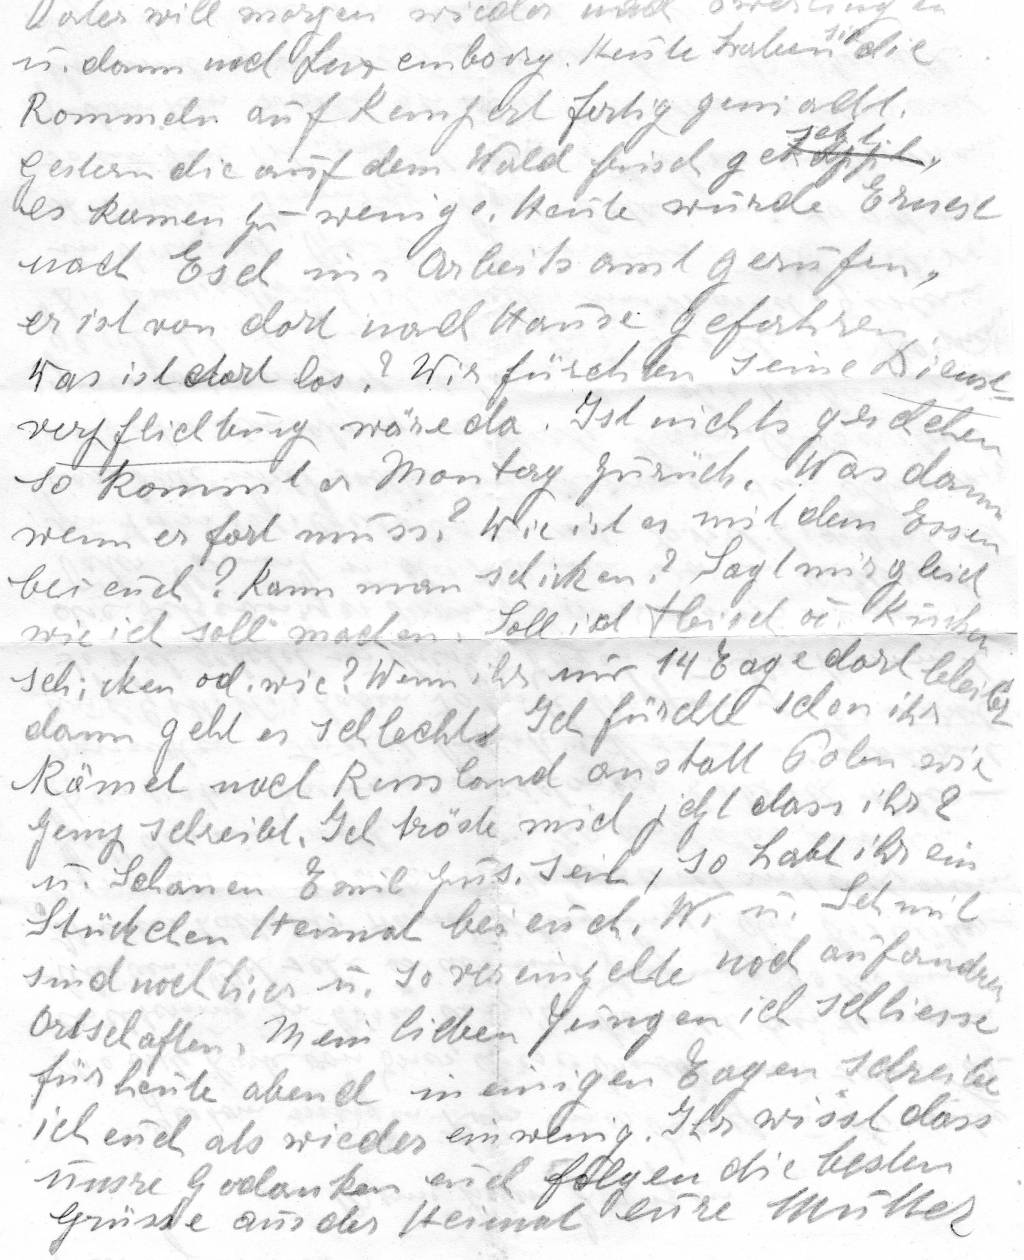 Vater will morgen wieder nach
u. dann nach Luxemburg. Heute haben sie die
Rommeln auf Kempert fertig gemacht.
Gestern die auf dem Wald frisch gesetzt,
es kamen zu wenige. Heute wurde Ernest
nach Esch ins Arbeitsamt gerufen,
er ist von dort nach Hause gefahren
Was ist dort los? Wir fürchten seine Dienst-
verpflichtung wäre da. Ist nichts geschehen
so kommt er Montag zurück. Was dann
wenn er fort muss? Wie ist es mit dem Essen
bei euch? Kann man schicken? Sagt mir gleich
wie ich soll machen. Soll ich Fleisch od. Kuchen
schicken od. wie? Wenn ihr nur 14 Tage dort bleibt
dann geht es schlecht. Ich fürchte schon ihr
kämet nach Russland anstatt Polen wie
Jemp schreibt. Ich tröste mich jetzt dass ihr 2
u. Schanen Emil zus. seit, so habt ihr ein
Stückchen Heimat bei euch. W. u. Schmit
sind noch hier u. so vereinzelte noch auf andren
Ortschaften. Mein lieben Jungen ich schliesse
für heute abend in einigen Tagen schreibe
ich euch als wieder ein wenig. Ihr wisst dass
unsre Gedanken euch folgen die besten
Grüsse aus der Heimat eure Mutter